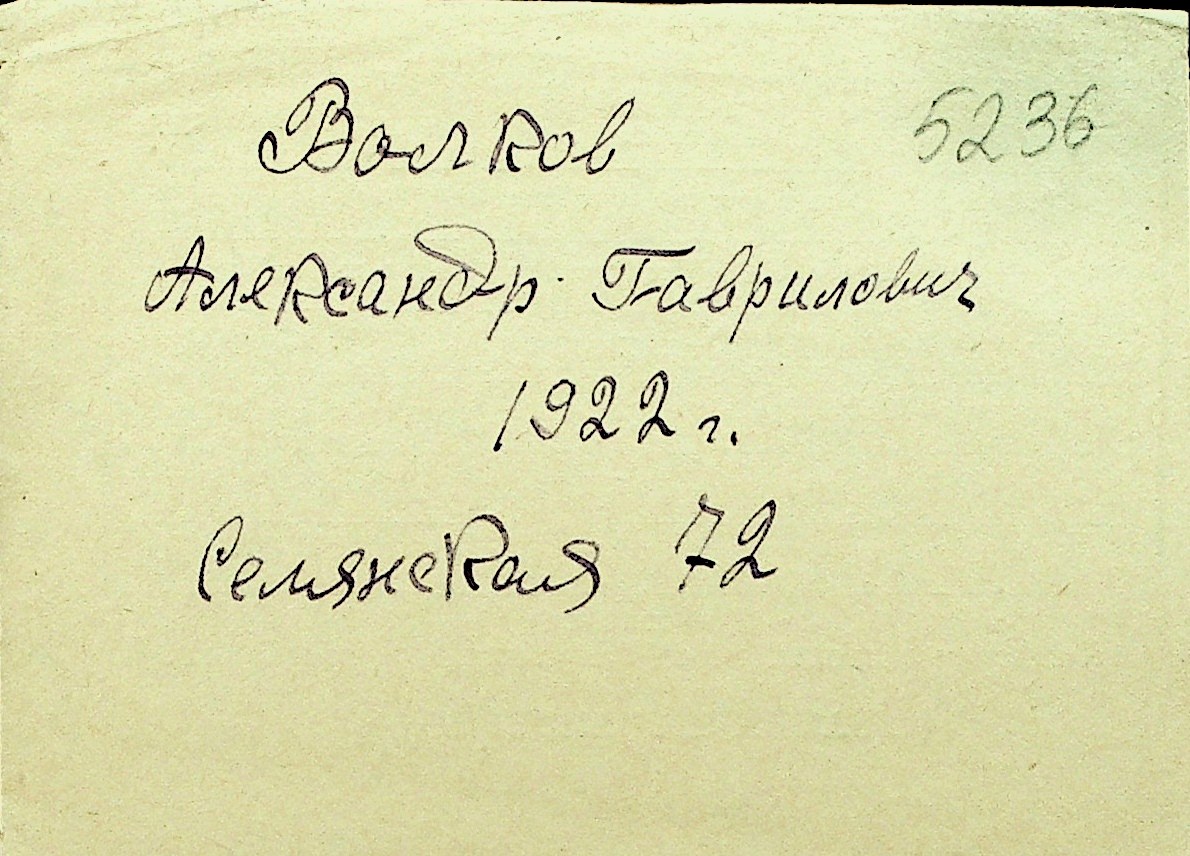 Волков 5236
Александр Гаврилович
1922 г.
Семянская 72